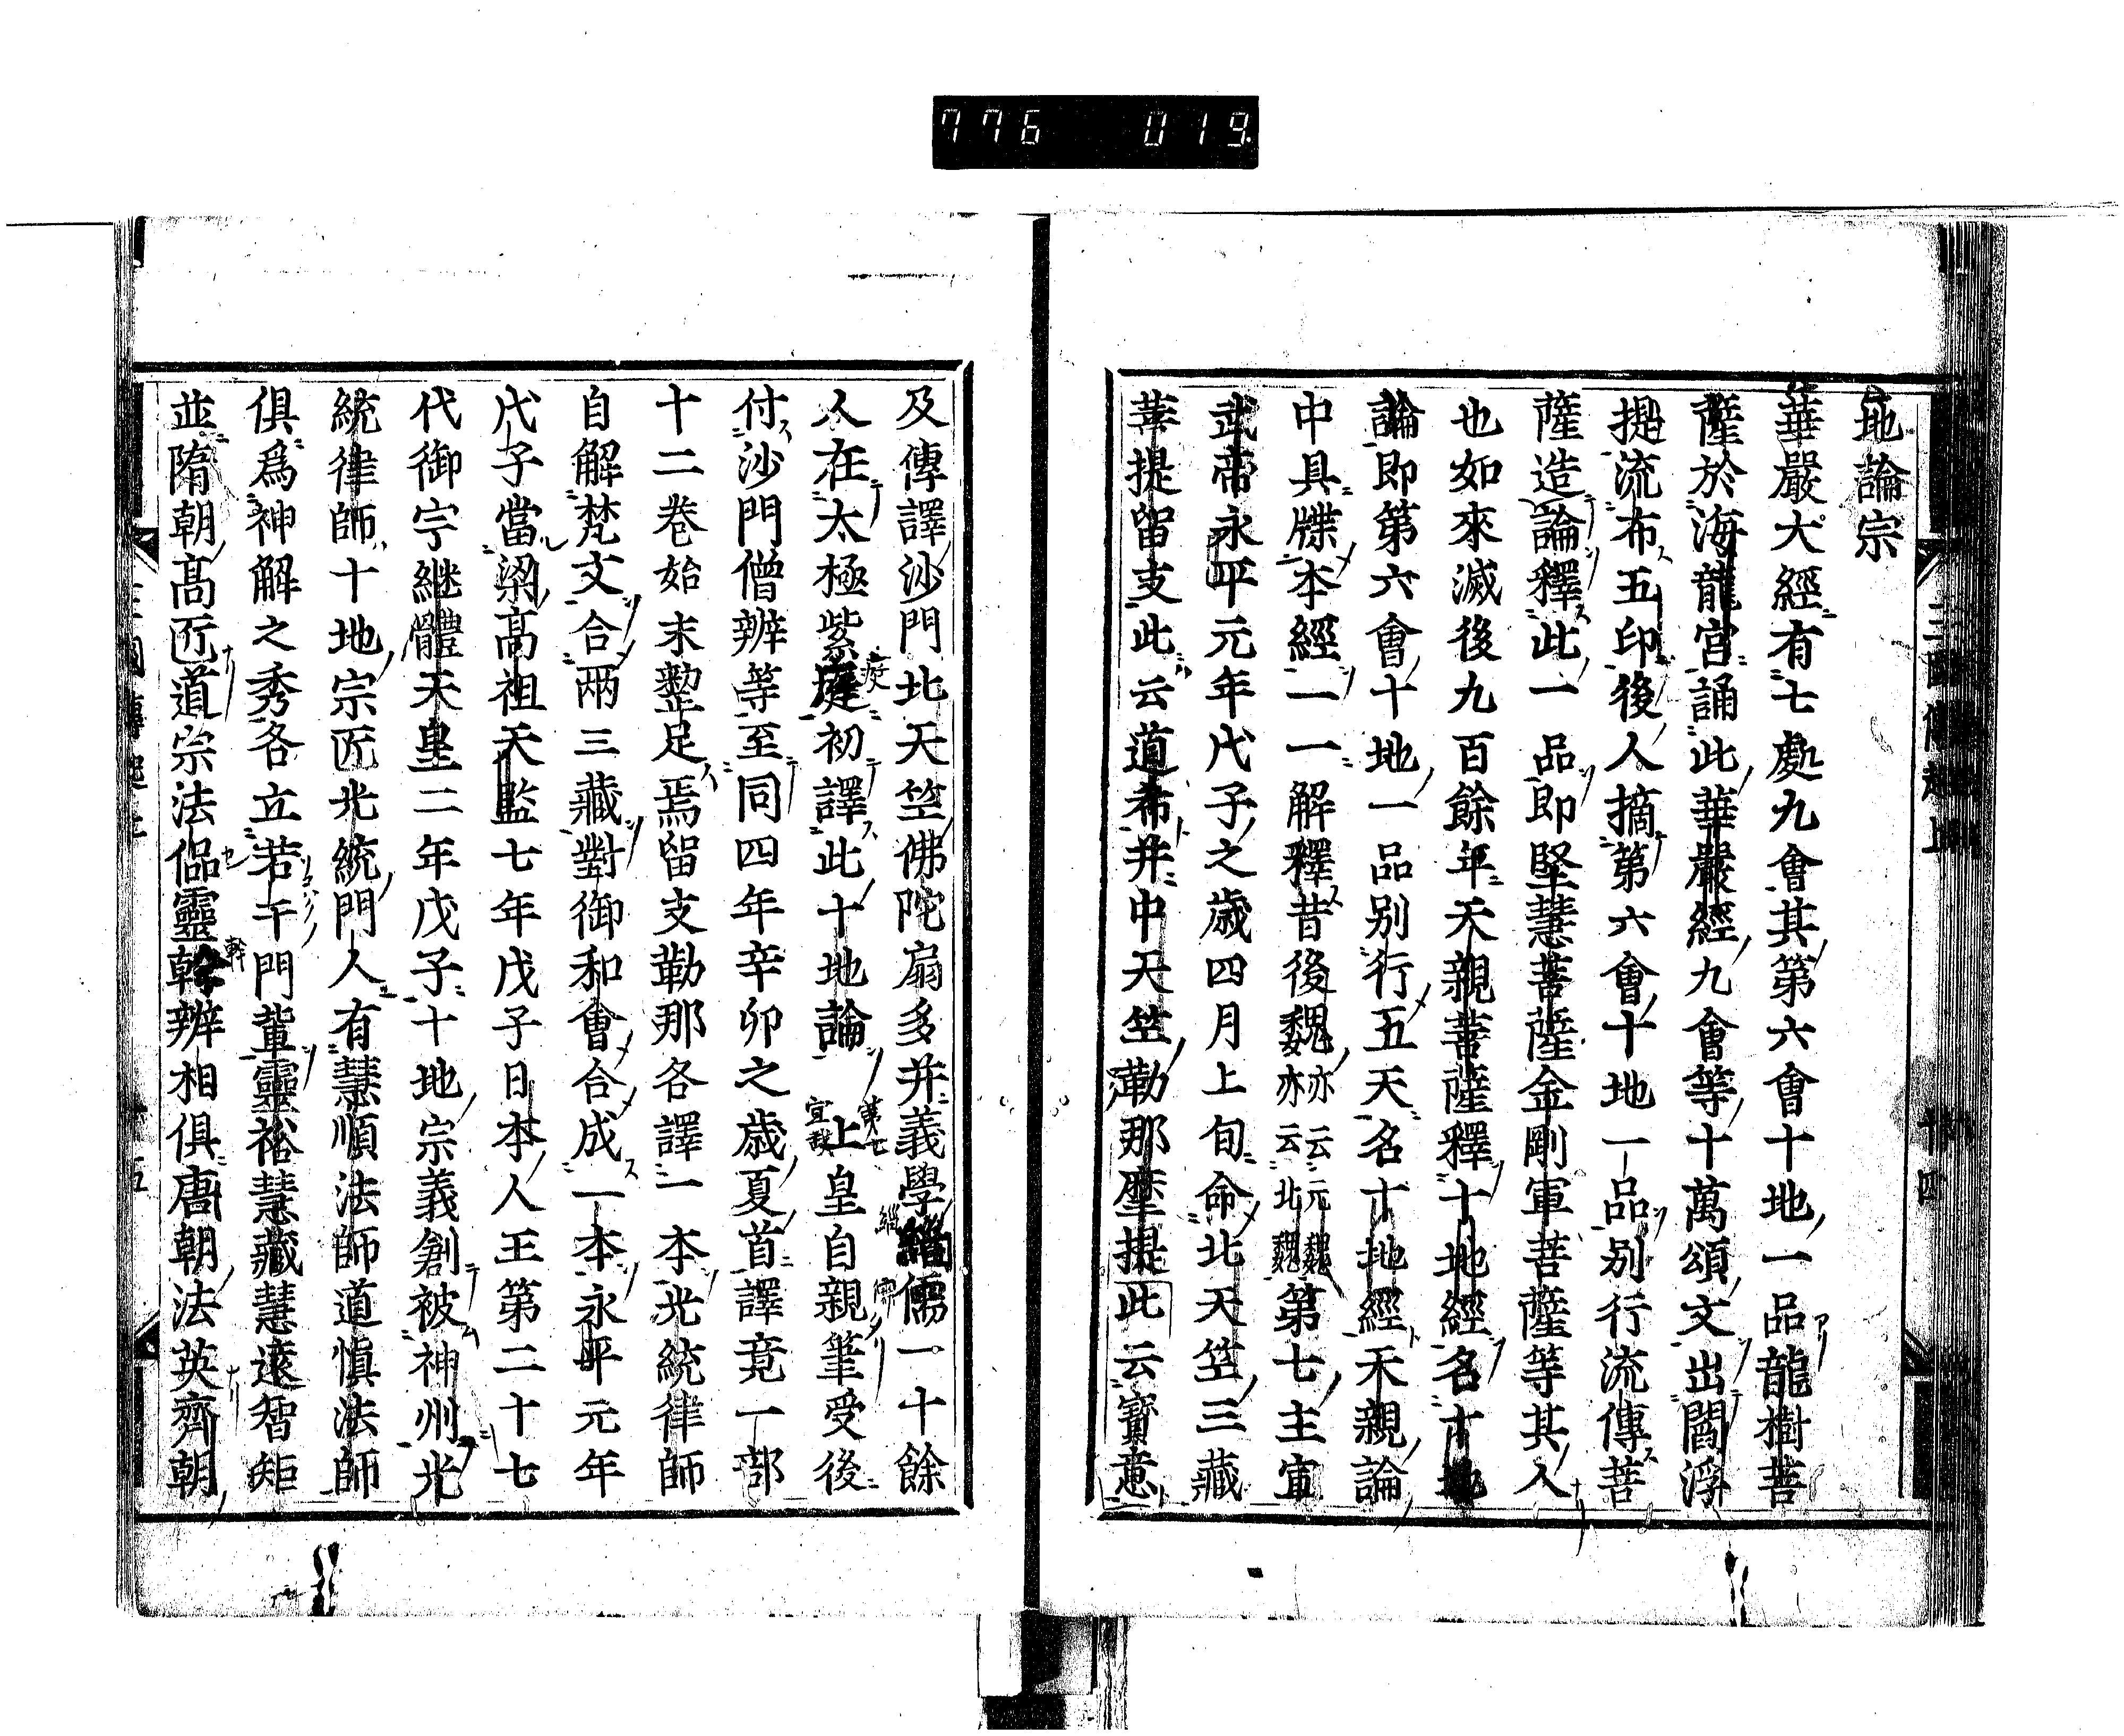 776 019
地論宗
華嚴大經有七處九會其第六會十地一品龍樹菩
薩於海龍宮誦此華嚴經九會等十萬頌文出閻浮
提流布五印後人摘第六會十地一品別行流傳菩
薩造論釋此一品即堅慧菩薩金剛軍菩薩等其人
也如來滅後九百餘年天親菩薩釋十地經名十地
論即第六會十地一品別行五天名十地經天親論
中具牒本經一一解釋昔後魏亦云元魏亦云北魏第七主宣
武帝永平元年戊子之歲四月上旬命北天竺三藏
菩提留支此云道希并中天竺勒那摩提此云寶意
及傳譯沙門北天竺佛陀扇多并義學緇儒一十餘
人在太極紫庭初譯此十地論上皇自親筆受後
付沙門僧辨等至同四年辛卯之歲夏首譯竟一部
十二卷始末整足焉留支勒那各譯一本光統律師
自解梵文合兩三藏對御和會合成一本永平元年
戊子當梁高祖天監七年戊子日本人王第二十七
代御宇繼體天皇二年戊子十地宗義創被神州光
統律師十地宗匠光統門人有慧順法師道慎法師
俱爲神解之秀各立若干門輩靈裕慧藏慧遠智矩
並隋朝高匠道宗法侃靈幹辨相俱唐朝法英齊朝